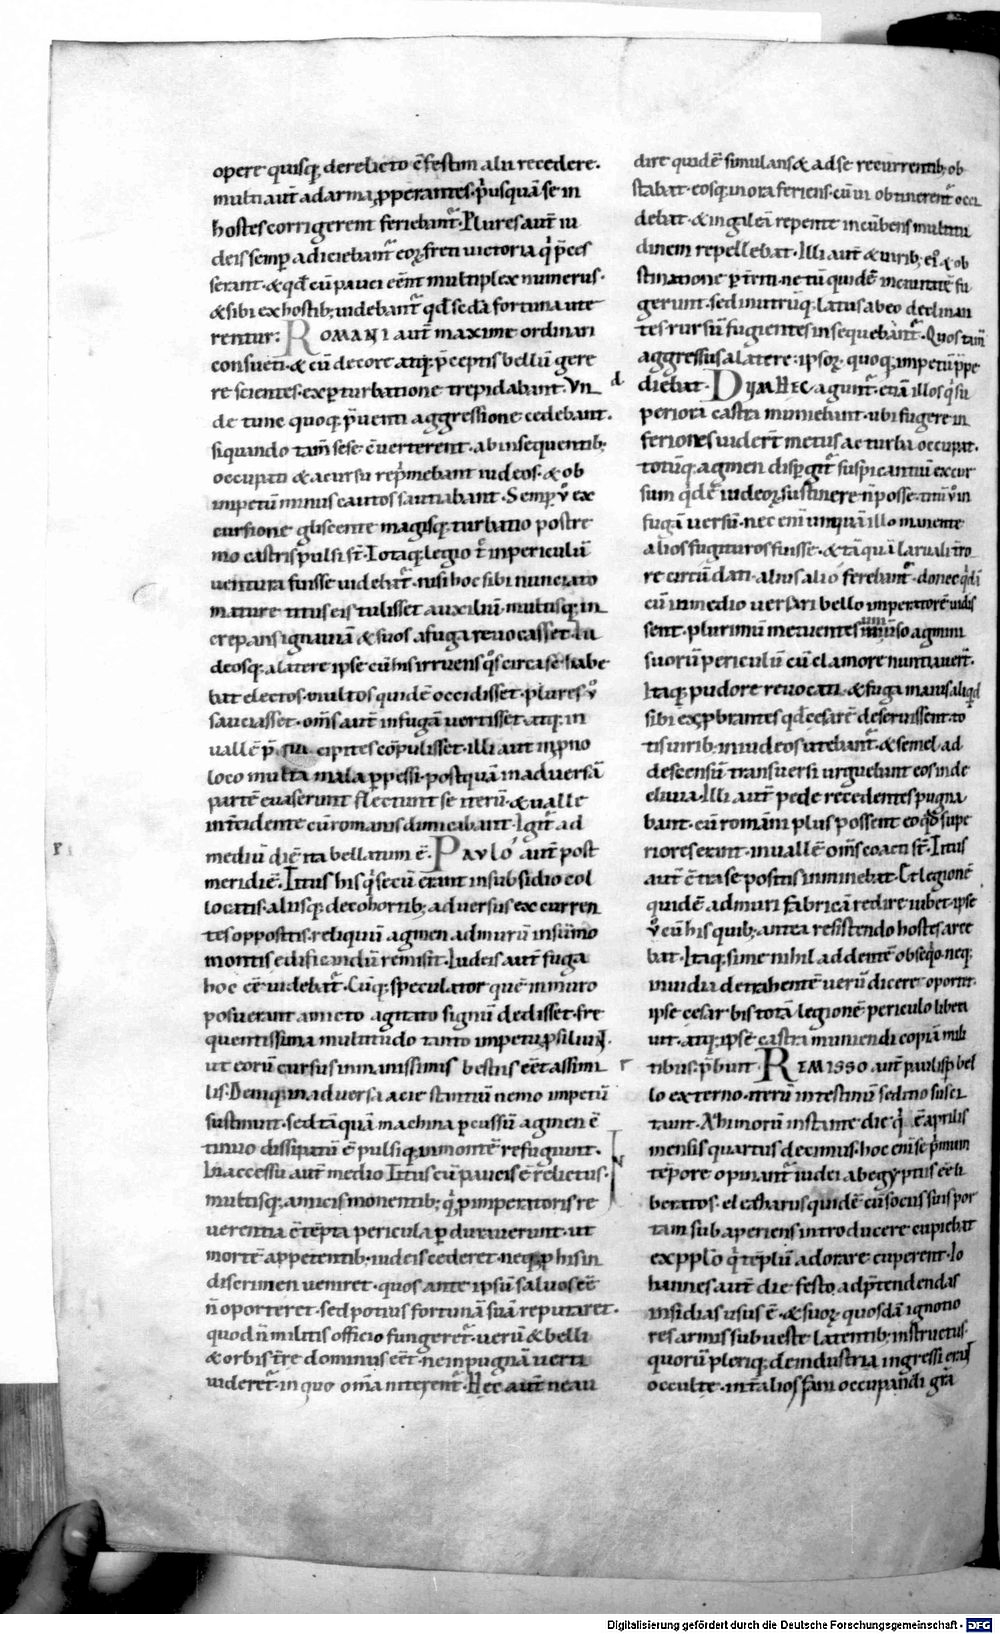 opere quisq; derelicto ē festim alii recedere.
multi aut̄ ad arma ꝓperantes. p̍usquā se in
hostes corrigerent feriebant᷑. Plures aut̄ iu
deis semp̱ adiciebant᷑ eoꝝ freti uictoria q̍ p̄ces
serant. & qđ cū pauci eēnt multiplex numerus.
& sibi ex hostib; uidebant᷑ qđ seda fortuna ute
rentur. ROMANI aut̄ maxime ordinari
consueti. & cū decore atq; p̄ceptis bellū gere
re scientes. ex ꝑturbatione trepidabant. Vn
de tunc quoq; p̄uenti aggressione cedebant.
siquando tam̄ sese c̄uerterent. ab insequentib;
occupati & a cursu rep̍mebant iudeos. & ob
impetū minus cautos sauciabant. Semp̱ v̊ ex
cursione gliscente magisq; turbatio postre
mo castris pulsi st̄. Totaq; legio t̄ in periculū
uentura fuisse uidebat᷑. nisi hoc sibi nunciato
mature titus eis tulisset auxiliū. multisq; in
crepans ignauiā & suos a fuga reuocasset. Iu
deosq; a latere ipse cū his irruens q̊s circa se habe
bat electos. multos quidē occidisset. plures v̊
sauciasset. om̄s aut̄ in fugā uertisset. atq; in
uallē p̄cipites cōpulisset. illi aut̄ in ꝓno
loco multa mala ꝑpessi. postquā in aduersā
partē euaserunt flectunt se iterū. & ualle
int̄cidente cū romanis dimicabant. Igit᷑ ad
mediū diē ita bellatum ē. PAVLO aut̄ post
meridiē. Titus his q̍ secū erant in subsidio col
locatis. aliisq; de cohortib; aduersus excurren
tes oppositis. reliquū agmen ad murū in sūmo
montis edificandū remisit. Iudeis aut̄ fuga
hoc eē uidebat᷑. Cūq; speculator quē in muro
posuerant amicto agitato signū dedisset. fre
quentissima multitudo tanto impetu ꝓsiliuit.
ut eorū cursus inmanissimis bestiis eēt assimi
lis. Deniq; in aduersa acie stantiū nemo impetū
sustinuit. sed tāquā machina ꝑcussū agmen ē
tinuo dissipatū ē pulsiq; in montē refugiunt.
In accessu aut̄ medio Titus cū paucis ē relictus.
multisq; amicis monentib; q̍ ꝓ imperatoris re
uerentia c̄tēpta pericula ꝑdurauerunt. ut
mortē appetentib; iudeis cederet. neq; ꝓ his in
discrimen ueniret. quos ante ipsū saluos eē
n̄ oporteret. sed potius fortunā suā reputaret.
quod n̄ militis officio fungeret᷑. uerū & belli
& orbis t̄re dominus eēt. ne in pugnā uerti
uideret᷑. in quo om̄a niterent᷑. Hec aut̄ ne au
dire quidē simulans & ad se recurrentib; ob
stabat. eosq; in ora feriens. cū ui obtinerent᷑ occi
debat. & in galeā repente incūbens multitu
dinem repellebat. Illi aut̄ & uirib; ei᷒ & ob
stinatione ꝑt̄riti. ne tū quidē in ciuitatē fu
gerunt. sed in utrūq; latus ab eo declinan
tes rursū fugientes insequebant᷑. Quos tam̄
aggressus a latere. ipsoꝝ quoq; impetū p̄pe
diebat. DVM HEC agunt᷑. etiā illos q̍ su
periora castra muniebant. ubi fugere in
feriores uider̄t metus ac turba occupat.
totūq; agmen disꝑgit᷑ suspicantiū excur
sum q̍dē iudeoꝝ sustinere n̄ posse. titū v̊ in
fugā uersū. nec eni unquā illo manente
alios fugituros fuisse. & tāquā laruali t̄ro
re circūdati. alius alio ferebant᷑. donec q̍dā
cū in medio uersari bello imperatorē uidis
sent. plurimū metuentes uniuerso agmini
suorū periculū cū clamore nuntiauer̄t.
Itaq; pudore reuocati. & fuga maius aliqd
sibi exꝓbrantes qđ cesarē deseruissent. to
tis uirib; in iudeos utebant᷑. & semel ad
descensū transuersi urguebant eos inde
cliuia. Illi aut̄ pede recedentes pugna
bant. cū romani plus possent eo qđ supe
riores erant. in uallē om̄s coacti st̄. Titus
aut̄ c̄tra se positis inminebat. Et legionē
quidē ad muri fabricā redire iubet. ipse
v̊ cū his quib; antea resistendo hostes arce
bat. Itaq; si me nihil addentē obseq̍o. neq;
inuidia detrahentē uerū dicere oportet.
ipse cesar bis totā legionē periculo libera
uit. atq; ipsē castra muniendi copiā mili
tibus p̄buit. REMISSO aut̄ paulisꝑ bel
lo externo. iterū intestinū seditio susci
tauit. Azimorū instante die q̍ ē aprilis
mensis quartus decimus. hoc eni se p̍mum
tēpore opinant᷑ iudei ab egyptiis eē li
beratos. eleazarus quidē cū sociis suis por
tam sub aperiens introducere cupiebat
ex ppl̄o q̍ tēplū adorare cuperent. Io
hannes aut̄ die festo. ad p̄tendendas
insidias usus ē. & suoꝝ quosdā ignotio
res armis sub ueste latentib; instructus.
quorū pleriq; de industria ingressi erant
occulte. int̄ alios fani occupandi gr̄a
Digitalisierung gefördert durch die Deutsche Forschungsgemeinschaft - DFG